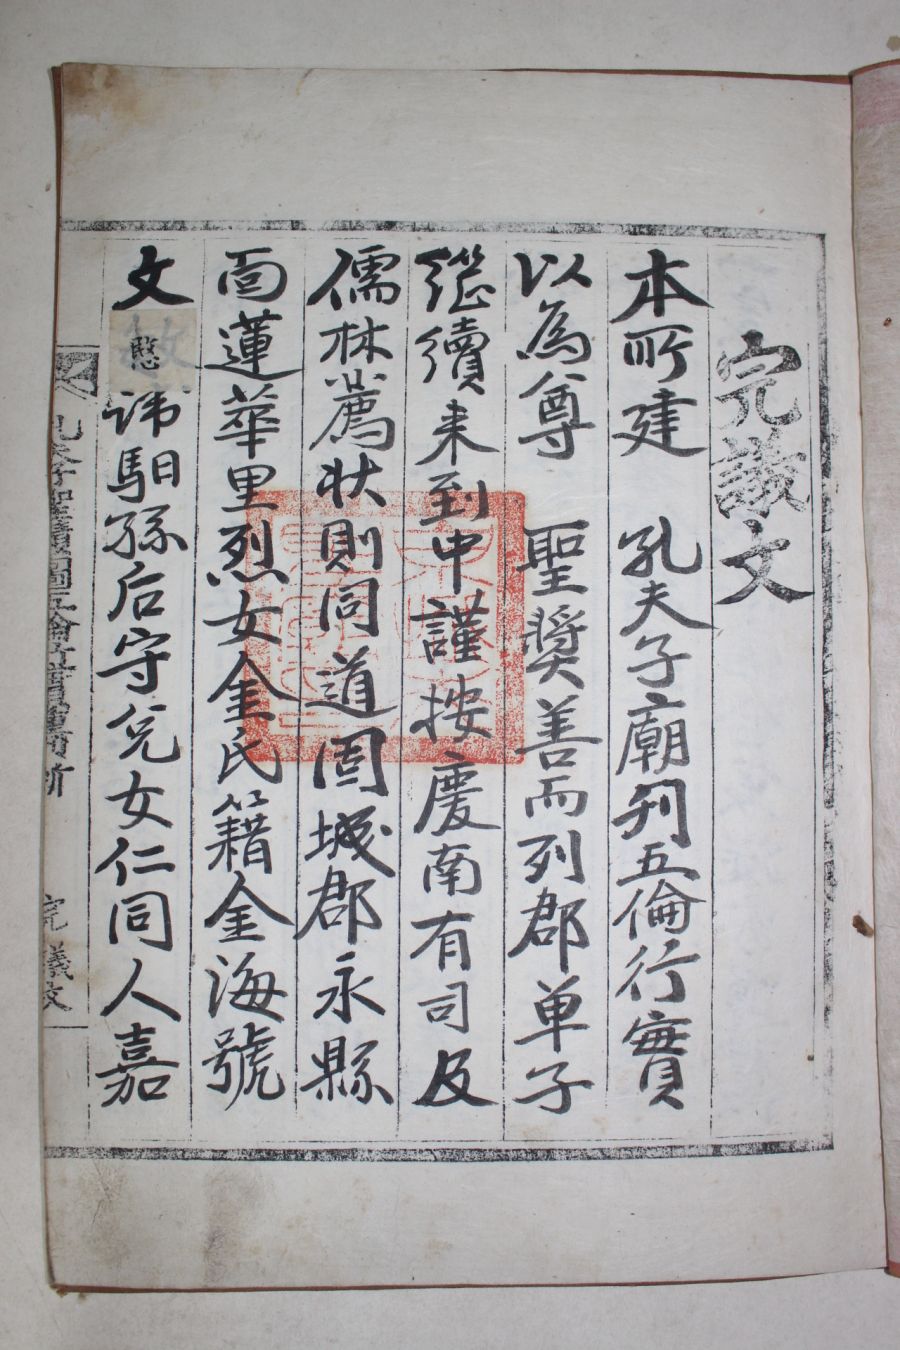 完議文
本所建 孔夫子廟刋五倫行實
以為尊 聖奬善而列郡单子
継續来到中謹按慶南有司及
儒林薦状則同道固城郡永縣
面蓮華里烈女金氏籍金海號
文愍諱馹孫后守兌女仁同人嘉
完議文